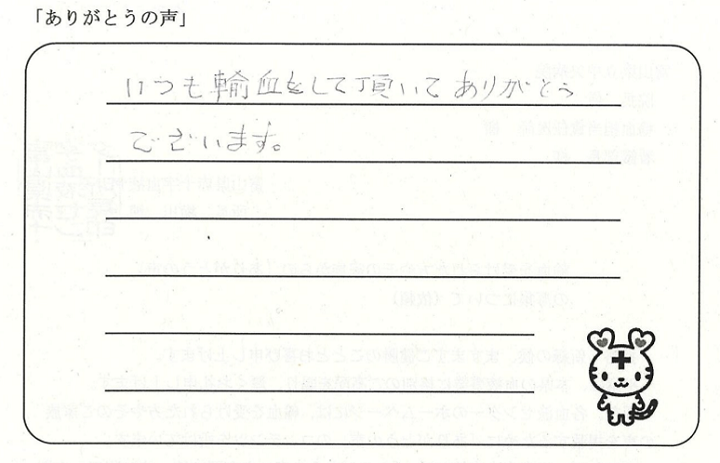 「ありがとうの声」
いつも輸血をして頂いてありがとう
ございます。